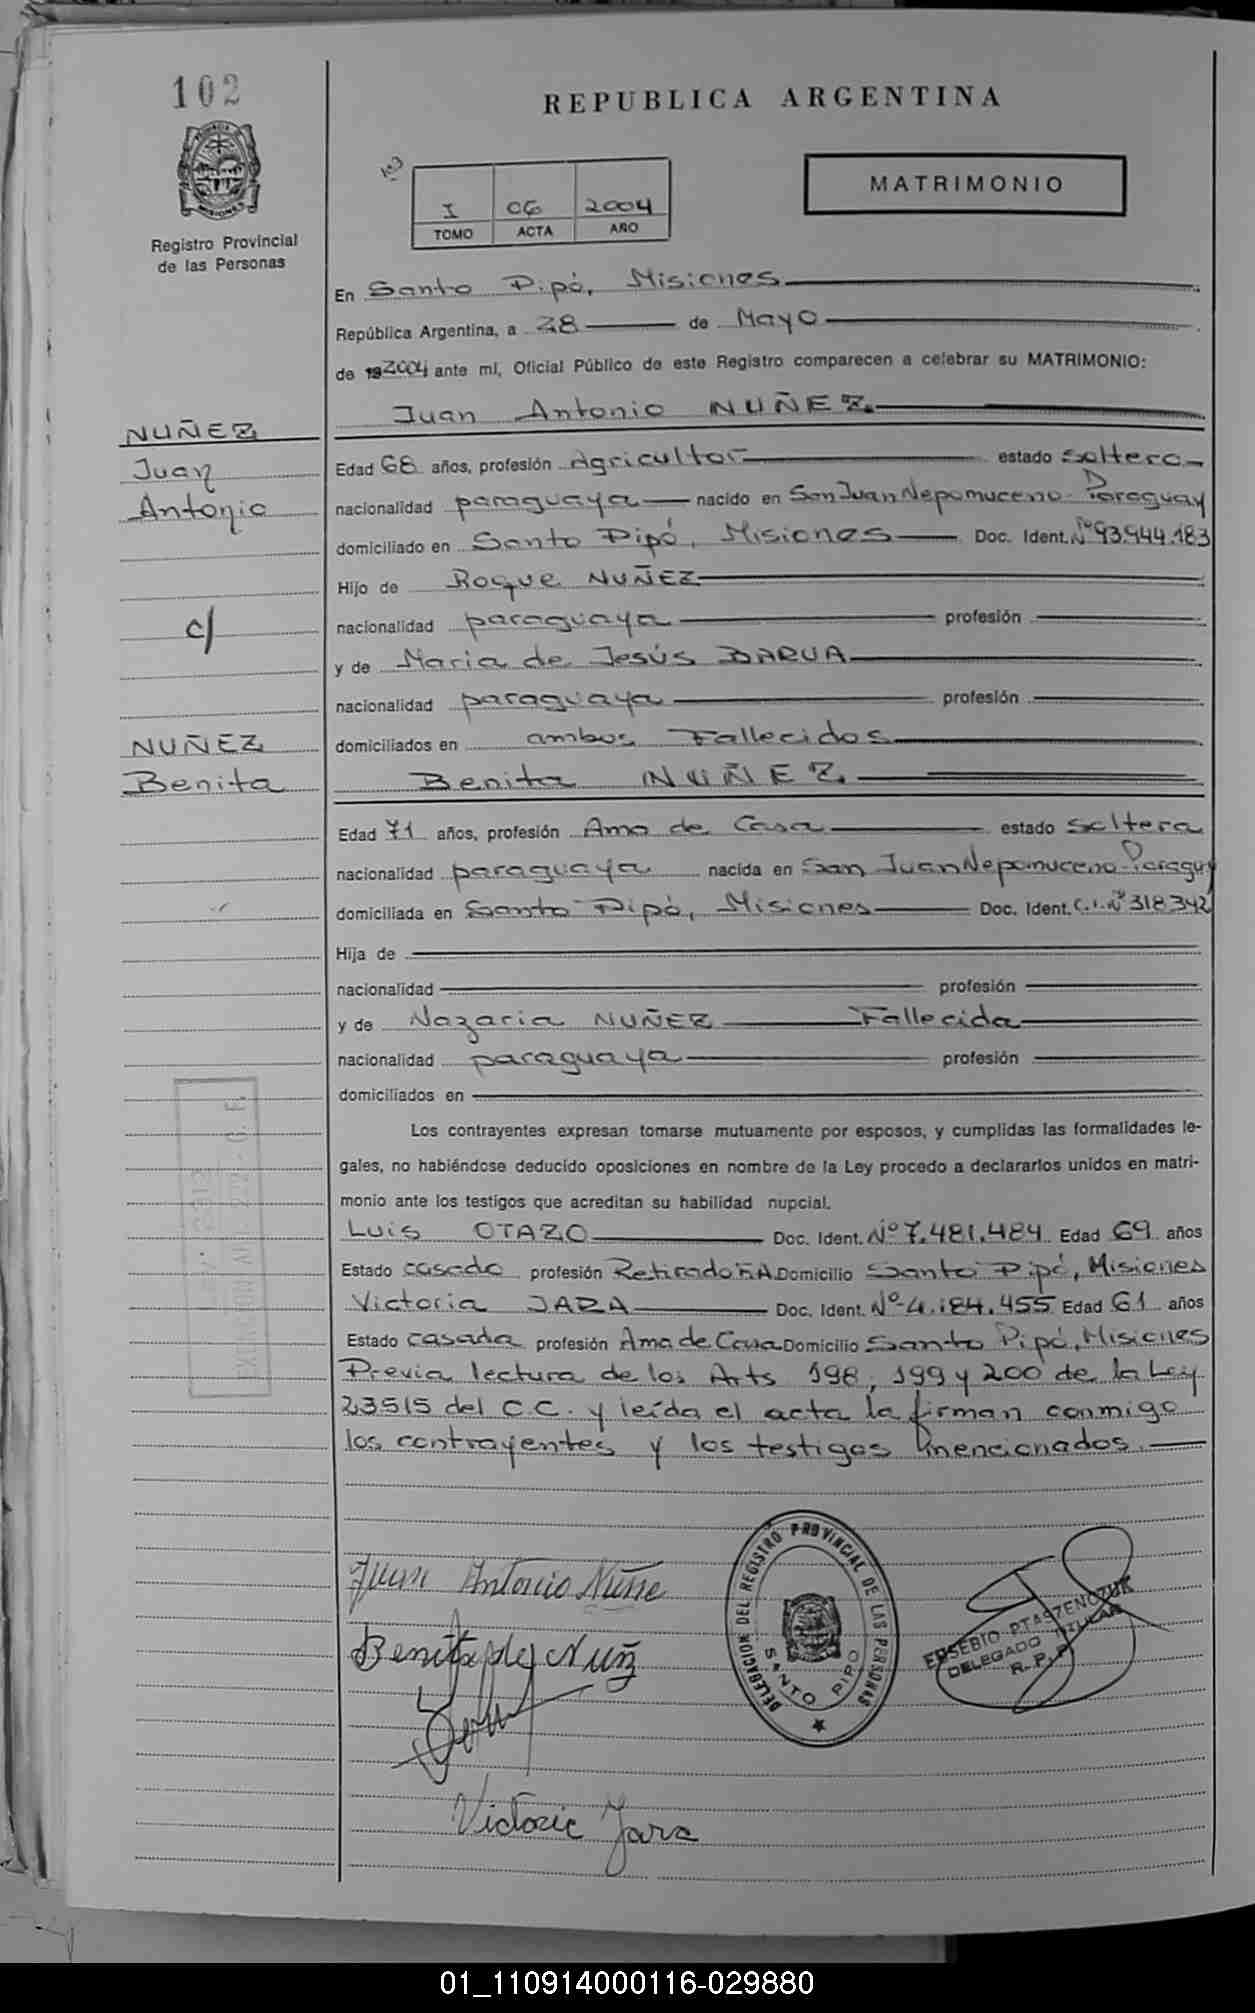 102
REPUBLICA ARGENTINA
103
I 06 2004
TOMO ACTA AÑO
MATRIMONIO
PROVINCIA
MISIONES
Registro Provincial
de las Personas
En Santo Pipó, Misiones
República Argentina, a 28 de Mayo
de 192004 ante mí, Oficial Público de este Registro comparecen a celebrar su MATRIMONIO:
Juan Antonio NUÑEZ.
NUÑEZ
Juan
Antonio
c/
NUÑEZ
Benita
Edad 68 años, profesión Agricultor estado soltero
nacionalidad paraguaya nacido en San Juan Nepomuceno-Paraguay
domiciliado en Santo Pipó, Misiones Doc. Ident. Nº 93.944.183
Hijo de Roque NUÑEZ
nacionalidad paraguaya profesión
y de Maria de Jesús BARUA
nacionalidad paraguaya profesión
domiciliados en ambos Fallecidos
Benita NUÑEZ.
Edad 71 años, profesión Ama de Casa estado soltera
nacionalidad paraguaya nacida en San Juan Nepomuceno-Paraguay
domiciliada en Santo Pipó, Misiones Doc. Ident. C.I. Nº 318342
Hija de
nacionalidad profesión
y de Nazaria NUÑEZ Fallecida
nacionalidad paraguaya profesión
domiciliados en
Los contrayentes expresan tomarse mutuamente por esposos, y cumplidas las formalidades le-
gales, no habiéndose deducido oposiciones en nombre de la Ley procedo a declararlos unidos en matri-
monio ante los testigos que acreditan su habilidad nupcial.
Luis OTAZO Doc. Ident. Nº 7.481.484 Edad 69 años
Estado casado profesión Retirado F.A. Domicilio Santo Pipó, Misiones
Victoria JARA Doc. Ident. Nº 4.184.455 Edad 61 años
Estado casada profesión Ama de Casa Domicilio Santo Pipó, Misiones
Previa lectura de los Arts 198, 199 y 200 de la Ley
23515 del C.C. y leída el acta la firman conmigo
los contrayentes y los testigos mencionados.
Juan Antonio Nuñe
Benita de Nuñ
Victoric Jara
DELEGACION DEL REGISTRO PROVINCIAL DE LAS PERSONAS
SANTO PIPO
EUSEBIO PTASZENCZUK
DELEGADO TITULAR
R.P.P.
01_110914000116-029880